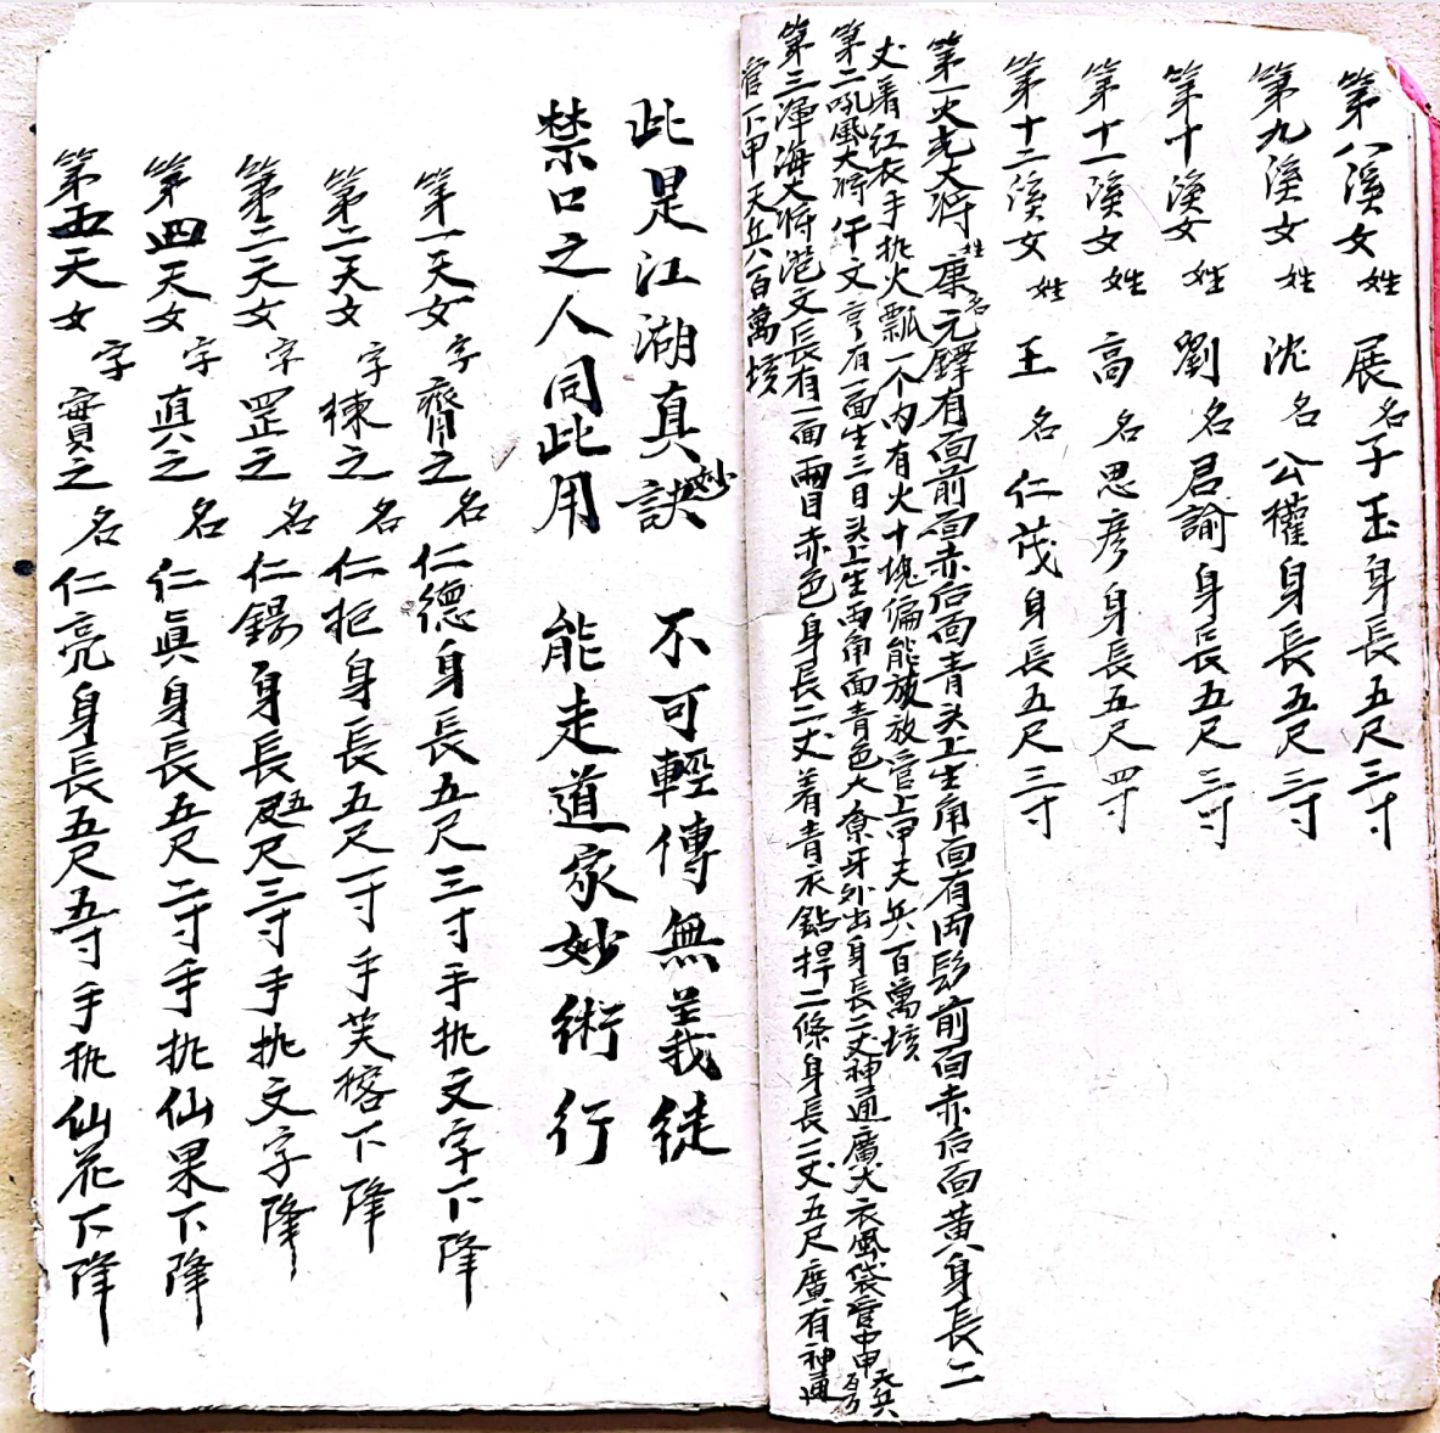 第八溪女姓展名子玉身長五尺三寸
第九溪女姓沈名公權身長五尺三寸
第十溪女姓劉名君諭身長五尺三寸
第十一溪女姓高名思彥身長五尺四寸
第十二溪女姓王名仁茂身長五尺三寸
第一火光大將姓康名元鐸有面前面赤后面青头上生角面有両髟前面赤后面黄身長二
丈着紅衣手执火瓢一个内有火十塊偏能放放管上甲夫兵百萬垓
第二吼風大将午文亨有一面生三目头上生両角面青色大牙外出身長二丈神通廣大衣風袋管中甲天兵
第三渾海大将文長有一面兩目赤色身長二丈着青衣鉆捍二條身長二丈五尺廣有神通
管下甲天兵六百萬垓
此是江湖真妙訣 不可輕傳無義徒
禁口之人同此用 能走道家妙術行
第一天女字齊之名仁德身長五尺三寸手执文字下降
第二天女字棟之名仁拒身長五尺一寸手芙榕下降
第三天女字罡之名仁錫身長五尺三寸手执文字降
第四天女字真之名仁眞身長五尺二寸手执仙果下降
第五天女字實之名仁亮身長五尺五寸手执仙花下降